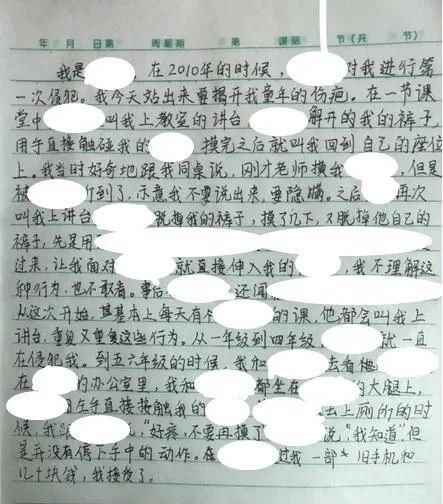 年 月 日 第 周 星期 第 课 第 节 (共 节)
我是 , 在2010年的时候, 对我进行第
一次侵犯。我今天站出来要揭开我童年的伤疤。在一节课
堂中 叫我上教室的讲台 解开的我的裤子,
用手直接触碰我的 , 摸完之后就叫我回到自己的座位
上。我当时好奇地跟我同桌说, 刚才老师摸我 , 但是
被 到了, 示意我不要说出来, 要隐瞒。之后 再次
叫我上讲台 脱掉我的裤子, 摸了几下, 又脱掉他自己的
裤子, 先是用
过来, 让我面对 就直接伸入我的 , 我不理解这
种行为, 也不敢看。事后 还
从这次开始, 其基本上每天有 的课, 他都会叫我上
讲台, 重复又重复这些行为。从一年级到四年级 就一直
在侵犯我。到五六年级的时候, 我和 去看
在 的办公室里, 我和 都坐在 的大腿上,
用左手直接接触我的 出上厕所的时
候, 我 "好疼, 不要再摸了 说, "我知道"但
是并没有停下手中的动作。在 过我一部 旧手机和
几十块钱, 我接受了。